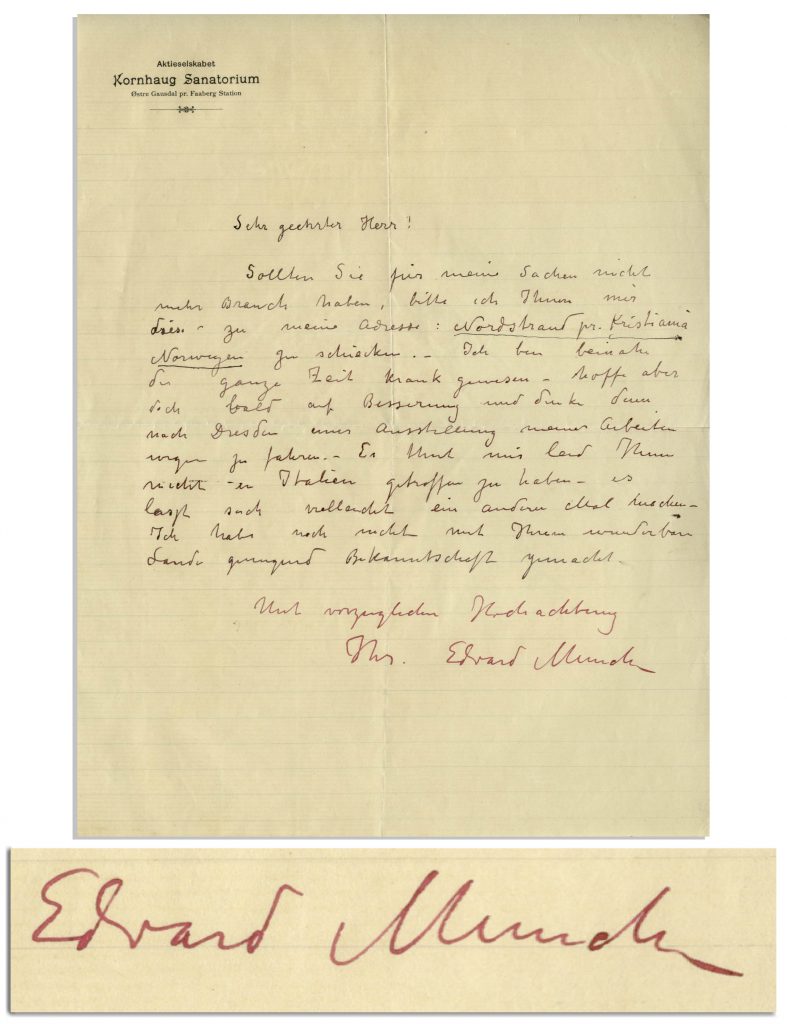 Aktieselskabet
Kornhaug Sanatorium
Østre Gausdal pr. Faaberg Station
Sehr geehrter Herr!
Sollten Sie für meine Sachen nicht
mehr Brauch haben, bitte ich Ihnen mir
diese - zu meine Adresse: Nordstrand pr. Kristiania
Norwegen zu schicken. - Ich bin beinahe
die ganze Zeit krank gewesen - hoffe aber
doch bald auf Besserung und denke dann
nach Dresden einer Ausstellung meiner Arbeiten
wegen zu fahren. - Es thut mir leid Ihnen
nicht in Italien getroffen zu haben - es
lasst sich vielleicht ein anderes Mal machen -
Ich habe noch nicht mit Ihrem wunderbaren
Lande genugend Bekanntschaft gemacht.
Mit vorzuglicher Hochachtung
Ihr. Edvard Munch
Edvard Munch